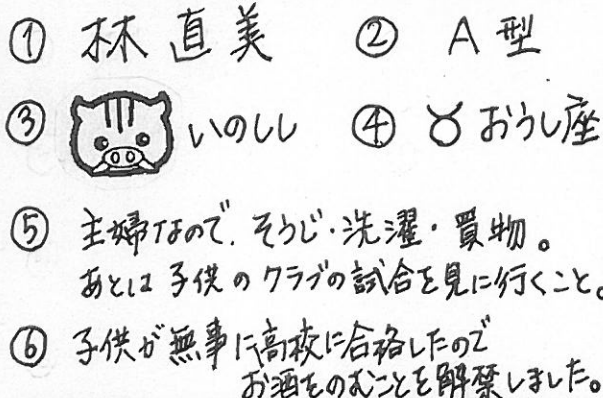 ① 林 直美 ② A型
③ いのしし ④ ♉ おうし座
⑤ 主婦なので、そうじ・洗濯・買物。
あとは子供のクラブの試合を見に行くこと。
⑥ 子供が無事に高校に合格したので
お酒をのむことを解禁しました。